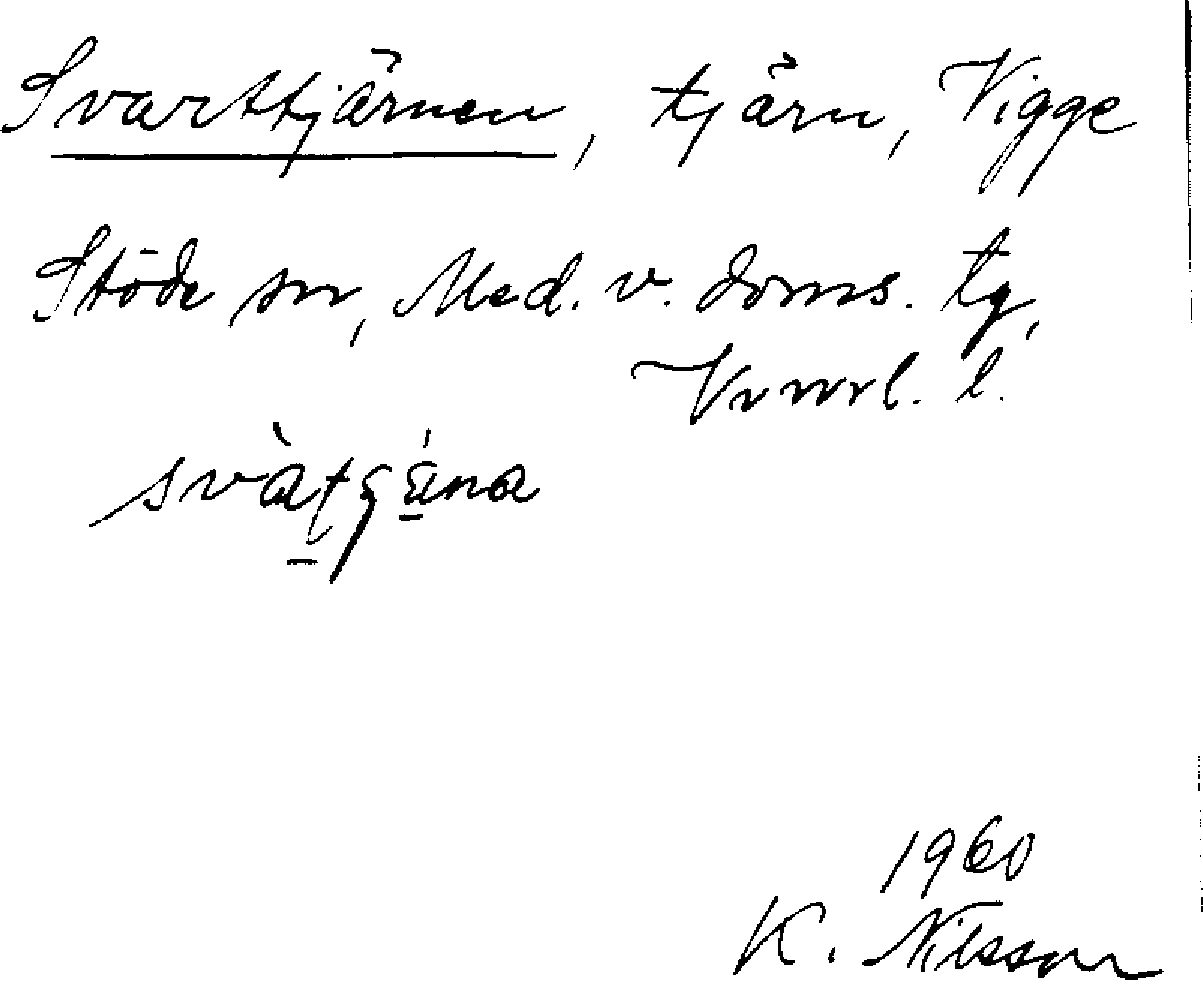 Svarttjärnen, tjärn, Vigge
Stöde sn, Med. v. doms. tg,
Vnorrl. l.
1960
K. Nilsson